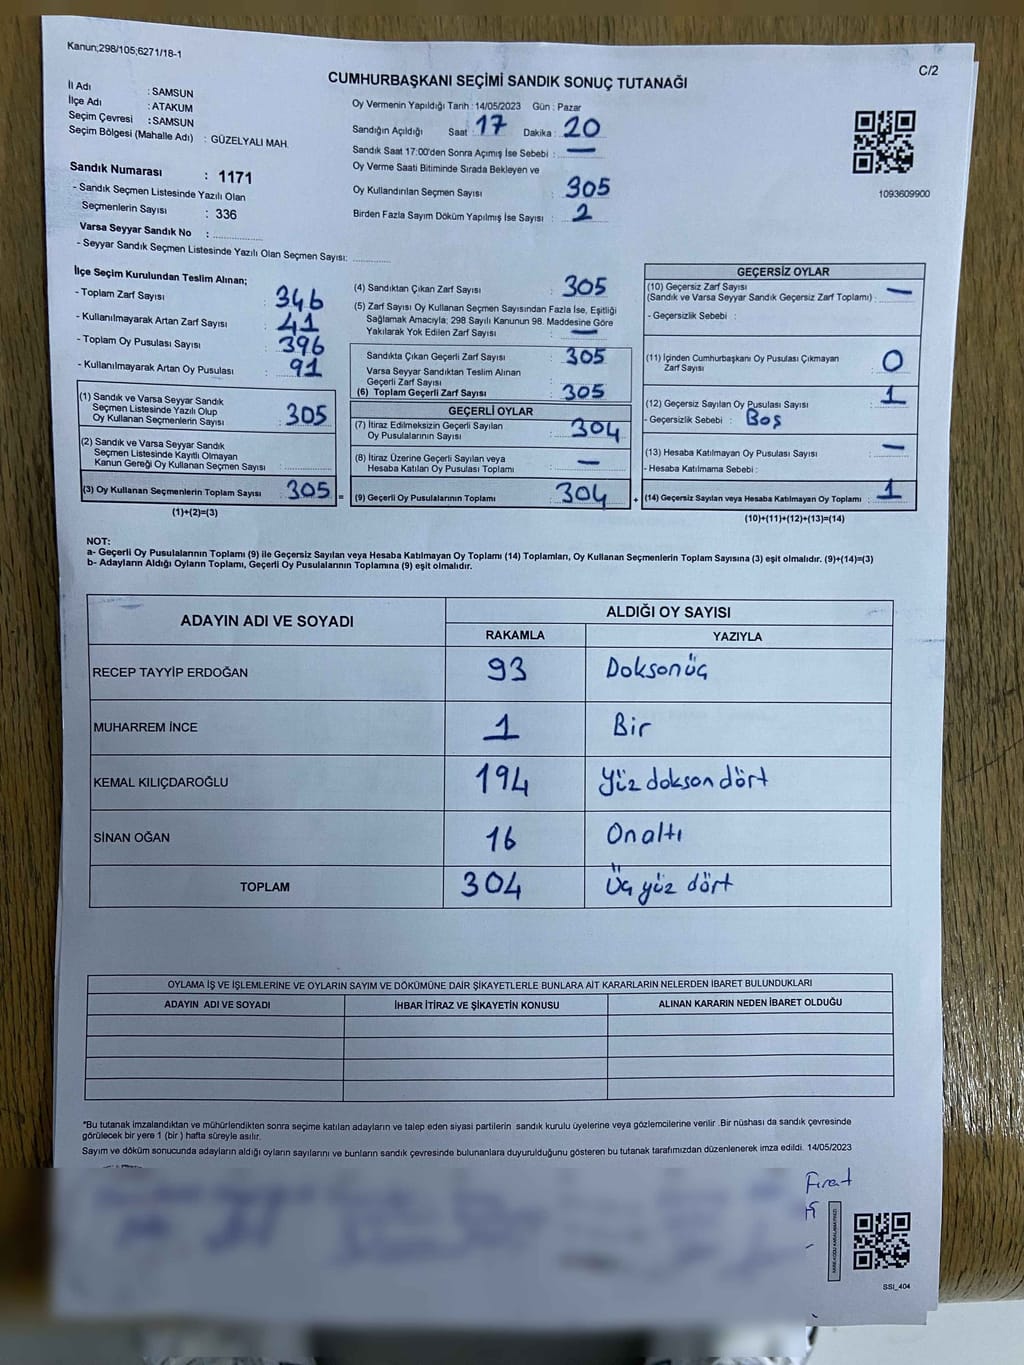 Kanun;298/105;6271/18-1
C/2
CUMHURBAŞKANI SEÇİMİ SANDIK SONUÇ TUTANAĞI
İl Adı : SAMSUN
İlçe Adı : ATAKUM
Seçim Çevresi : SAMSUN
Seçim Bölgesi (Mahalle Adı) : GÜZELYALI MAH.
Sandık Numarası : 1171
- Sandık Seçmen Listesinde Yazılı Olan
Seçmenlerin Sayısı : 336
Varsa Seyyar Sandık No :
- Seyyar Sandık Seçmen Listesinde Yazılı Olan Seçmen Sayısı:
Oy Vermenin Yapıldığı Tarih : 14/05/2023 Gün : Pazar
Sandığın Açıldığı Saat : 17 Dakika : 20
Sandık Saat 17:00'den Sonra Açımış İse Sebebi : —
Oy Verme Saati Bitiminde Sırada Bekleyen ve
Oy Kullandırılan Seçmen Sayısı : 305
Birden Fazla Sayım Döküm Yapılmış İse Sayısı : 2
1093609900
İlçe Seçim Kurulundan Teslim Alınan;
- Toplam Zarf Sayısı : 346
- Kullanılmayarak Artan Zarf Sayısı : 41
- Toplam Oy Pusulası Sayısı : 396
- Kullanılmayarak Artan Oy Pusulası : 91
(1) Sandık ve Varsa Seyyar Sandık
Seçmen Listesinde Yazılı Olup
Oy Kullanan Seçmenlerin Sayısı : 305
(2) Sandık ve Varsa Seyyar Sandık
Seçmen Listesinde Kayıtlı Olmayan
Kanun Gereği Oy Kullanan Seçmen Sayısı :
(3) Oy Kullanan Seçmenlerin Toplam Sayısı : 305 =
(1)+(2)=(3)
(4) Sandıktan Çıkan Zarf Sayısı : 305
(5) Zarf Sayısı Oy Kullanan Seçmen Sayısından Fazla İse, Eşitliği
Sağlamak Amacıyla; 298 Sayılı Kanunun 98. Maddesine Göre
Yakılarak Yok Edilen Zarf Sayısı : —
Sandıkta Çıkan Geçerli Zarf Sayısı : 305
Varsa Seyyar Sandıktan Teslim Alınan
Geçerli Zarf Sayısı :
(6) Toplam Geçerli Zarf Sayısı : 305
GEÇERLİ OYLAR
(7) İtiraz Edilmeksizin Geçerli Sayılan
Oy Pusulalarının Sayısı : 304
(8) İtiraz Üzerine Geçerli Sayılan veya
Hesaba Katılan Oy Pusulası Toplamı : —
(9) Geçerli Oy Pusulalarının Toplamı : 304 +
GEÇERSİZ OYLAR
(10) Geçersiz Zarf Sayısı
(Sandık ve Varsa Seyyar Sandık Geçersiz Zarf Toplamı) : —
- Geçersizlik Sebebi :
(11) İçinden Cumhurbaşkanı Oy Pusulası Çıkmayan
Zarf Sayısı : 0
(12) Geçersiz Sayılan Oy Pusulası Sayısı : 1
- Geçersizlik Sebebi : Boş
(13) Hesaba Katılmayan Oy Pusulası Sayısı : —
- Hesaba Katılmama Sebebi :
(14) Geçersiz Sayılan veya Hesaba Katılmayan Oy Toplamı : 1
(10)+(11)+(12)+(13)=(14)
NOT:
a- Geçerli Oy Pusulalarının Toplamı (9) ile Geçersiz Sayılan veya Hesaba Katılmayan Oy Toplamı (14) Toplamları, Oy Kullanan Seçmenlerin Toplam Sayısına (3) eşit olmalıdır. (9)+(14)=(3)
b- Adayların Aldığı Oyların Toplamı, Geçerli Oy Pusulalarının Toplamına (9) eşit olmalıdır.
ADAYIN ADI VE SOYADI ALDIĞI OY SAYISI
RAKAMLA YAZIYLA
RECEP TAYYİP ERDOĞAN 93 Doksanüç
MUHARREM İNCE 1 Bir
KEMAL KILIÇDAROĞLU 194 Yüz doksan dört
SİNAN OĞAN 16 Onaltı
TOPLAM 304 Üç yüz dört
OYLAMA İŞ VE İŞLEMLERİNE VE OYLARIN SAYIM VE DÖKÜMÜNE DAİR ŞİKAYETLERLE BUNLARA AİT KARARLARIN NELERDEN İBARET BULUNDUKLARI
ADAYIN ADI VE SOYADI İHBAR İTİRAZ VE ŞİKAYETİN KONUSU ALINAN KARARIN NEDEN İBARET OLDUĞU
*Bu tutanak imzalandıktan ve mühürlendikten sonra seçime katılan adayların ve talep eden siyasi partilerin sandık kurulu üyelerine veya gözlemcilerine verilir .Bir nüshası da sandık çevresinde
görülecek bir yere 1 (bir ) hafta süreyle asılır.
Sayım ve döküm sonucunda adayların aldığı oyların sayılarını ve bunların sandık çevresinde bulunanlara duyurulduğunu gösteren bu tutanak tarafımızdan düzenlenerek imza edildi. 14/05/2023
Fırat
SSI_404